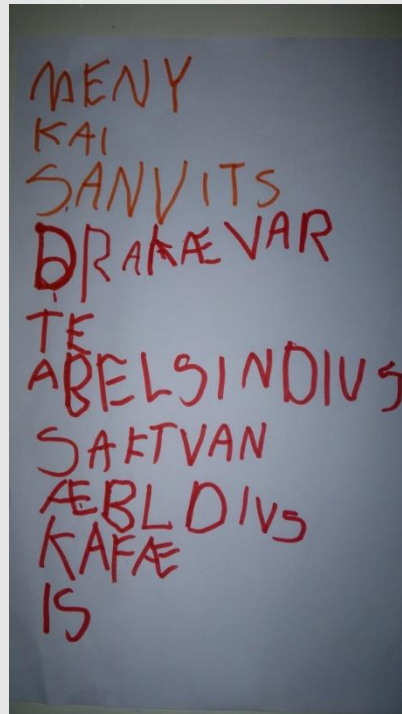 MENY
KAI
SANVITS
DRAKÆVAR
TE
ABELSINDIUS
SAFTVAN
ÆBLDIUS
KAFÆ
IS